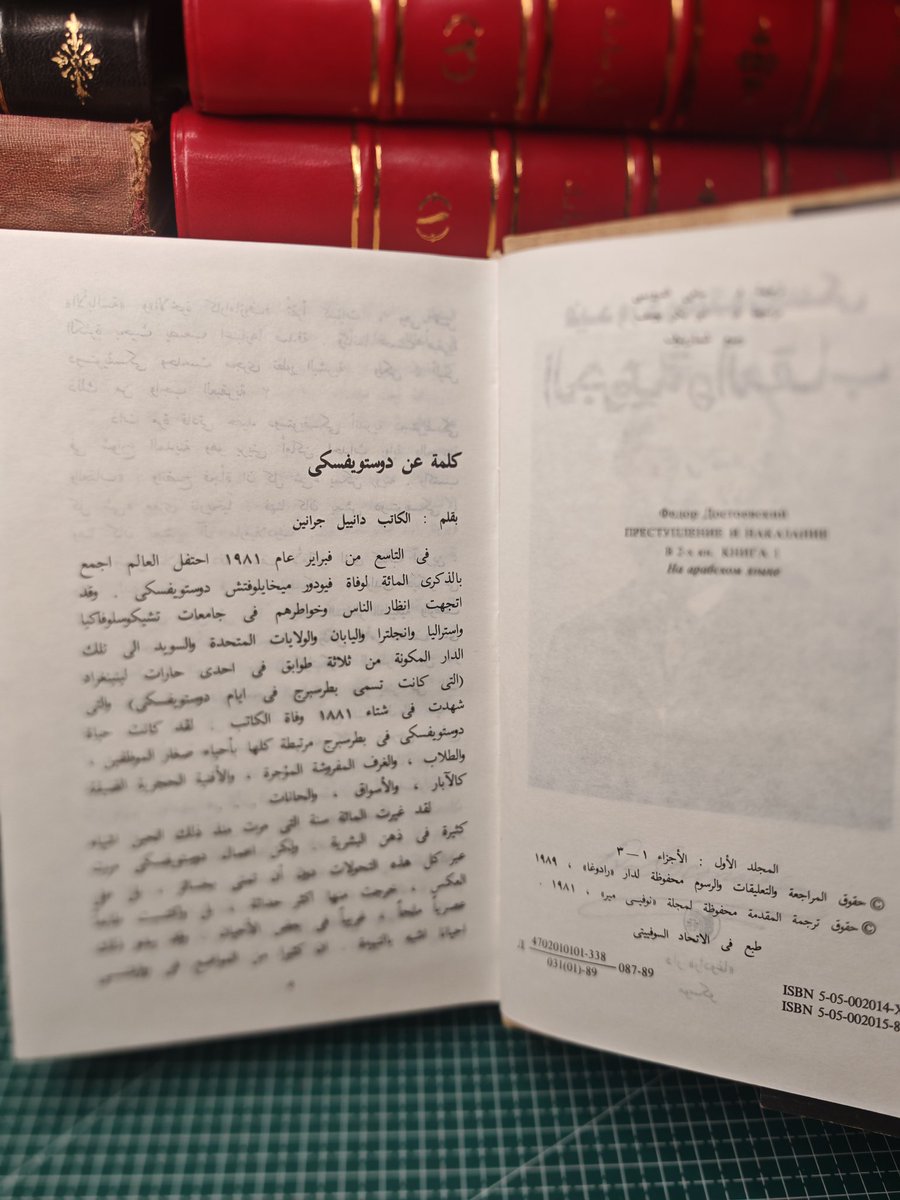 كلمة عن دوستويفسكى
بقلم : الكاتب دانييل جرانين
فى التاسع من فبراير عام ١٩٨١ احتفل العالم اجمع
بالذكرى المائة لوفاة فيودور ميخايلوفتش دوستويفسكى . وقد
اتجهت انظار الناس وخواطرهم فى جامعات تشيكوسلوفاكيا
واستراليا وانجلترا واليابان والولايات المتحدة والسويد الى تلك
الدار المكونة من ثلاثة طوابق فى احدى حارات لينينغراد
(التى كانت تسمى بطرسبرج فى ايام دوستويفسكى) والتى
شهدت فى شتاء ١٨٨١ وفاة الكاتب . لقد كانت حياة
دوستويفسكى فى بطرسبرج مرتبطة كلها بأحياء صغار الموظفين ،
والطلاب ، والغرف المفروشة المؤجرة ، والأفنية الحجرية الضيقة
كالآبار ، والأسواق ، والحانات
لقد غيرت المائة سنة التى مرت منذ ذلك الحين اشياء
كثيرة فى ذهن البشرية . ولكن اعمال دوستويفسكى مرت
عبر كل هذه التحولات دون أن تمنى بخسائر ، بل على
العكس ، خرجت منها اكثر حداثة ، بل واكتسبت طابعا
عصرياً ملحاً ، غريباً فى بعض الأحيان . وقد يبدو ذلك
احيانا اشبه بالنبوءة . ان كثيرا من المواضع فى
Федор Достоевский
ПРЕСТУПЛЕНИЕ И НАКАЗАНИЕ
В 2-х кн. КНИГА 1
На арабском языке
المجلد الأول : الأجزاء ١—٣
© حقوق المراجعة والتعليقات والرسوم محفوظة لدار «رادوغا» ، ١٩٨٩
© حقوق ترجمة المقدمة محفوظة لمجلة «نوفيى مير» ، ١٩٨١ .
طبع فى الاتحاد السوفييتى
Д 4702010101-338 087-89
031(01)-89
ISBN 5-05-002014-X
ISBN 5-05-002015-8